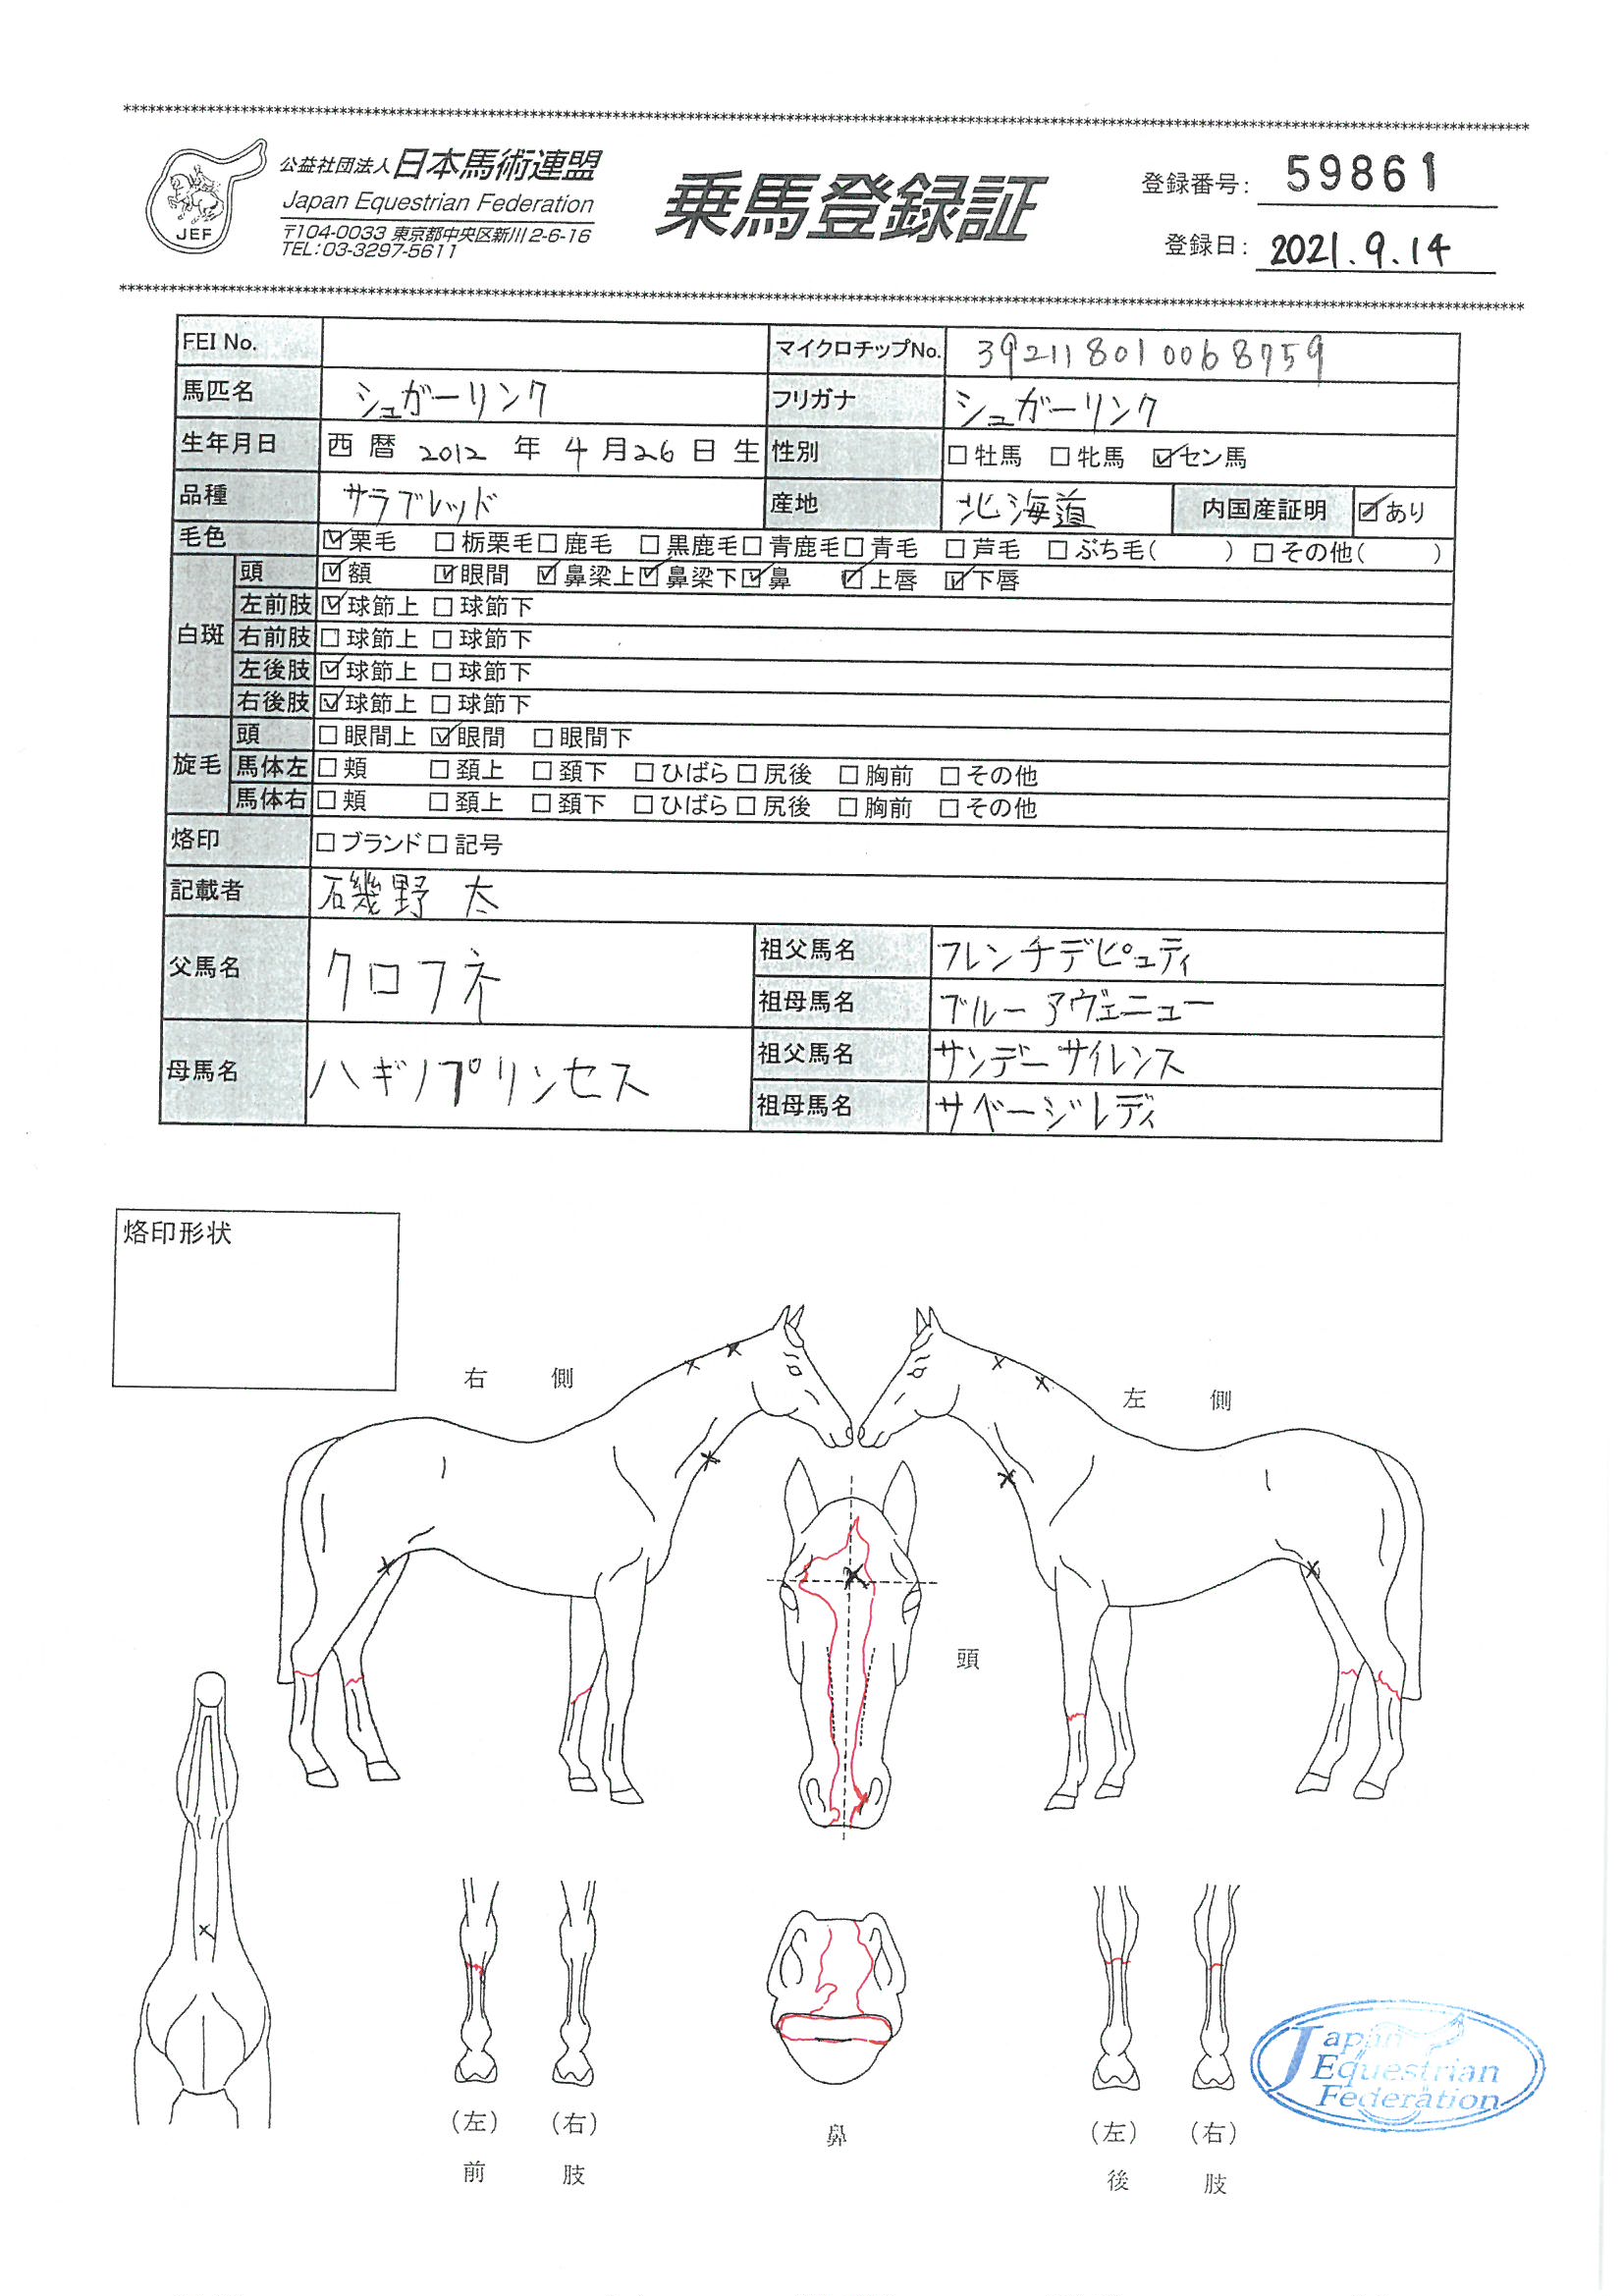 公益社団法人日本馬術連盟
Japan Equestrian Federation
〒104-0033 東京都中央区新川2-6-16
TEL:03-3297-5611
JEF
乗馬登録証
登録番号: 59861
登録日: 2021.9.14
FEI No. マイクロチップNo. 392118010068759
馬匹名 シュガーリンク フリガナ シュガーリンク
生年月日 西暦 2012 年 4 月 26 日 生 性別 □牡馬 □牝馬 ☑セン馬
品種 サラブレッド 産地 北海道 内国産証明 ☑あり
毛色 ☑栗毛 □栃栗毛 □鹿毛 □黒鹿毛 □青鹿毛 □青毛 □芦毛 □ぶち毛( ) □その他( )
白斑 頭 ☑額 ☑眼間 ☑鼻梁上 ☑鼻梁下 ☑鼻 ☑上唇 ☑下唇
左前肢 ☑球節上 □球節下
右前肢 □球節上 □球節下
左後肢 ☑球節上 □球節下
右後肢 ☑球節上 □球節下
旋毛 頭 □眼間上 ☑眼間 □眼間下
馬体左 □頬 □頚上 □頚下 □ひばら □尻後 □胸前 □その他
馬体右 □頬 □頚上 □頚下 □ひばら □尻後 □胸前 □その他
烙印 □ブランド □記号
記載者 磯野 太
父馬名 クロフネ 祖父馬名 フレンチデピュティ
祖母馬名 ブルーアヴェニュー
母馬名 ハギノプリンセス 祖父馬名 サンデーサイレンス
祖母馬名 サベージレディ
烙印形状
右側
左側
頭
(左) (右)
前肢
鼻
(左) (右)
後肢
Japan
Equestrian
Federation